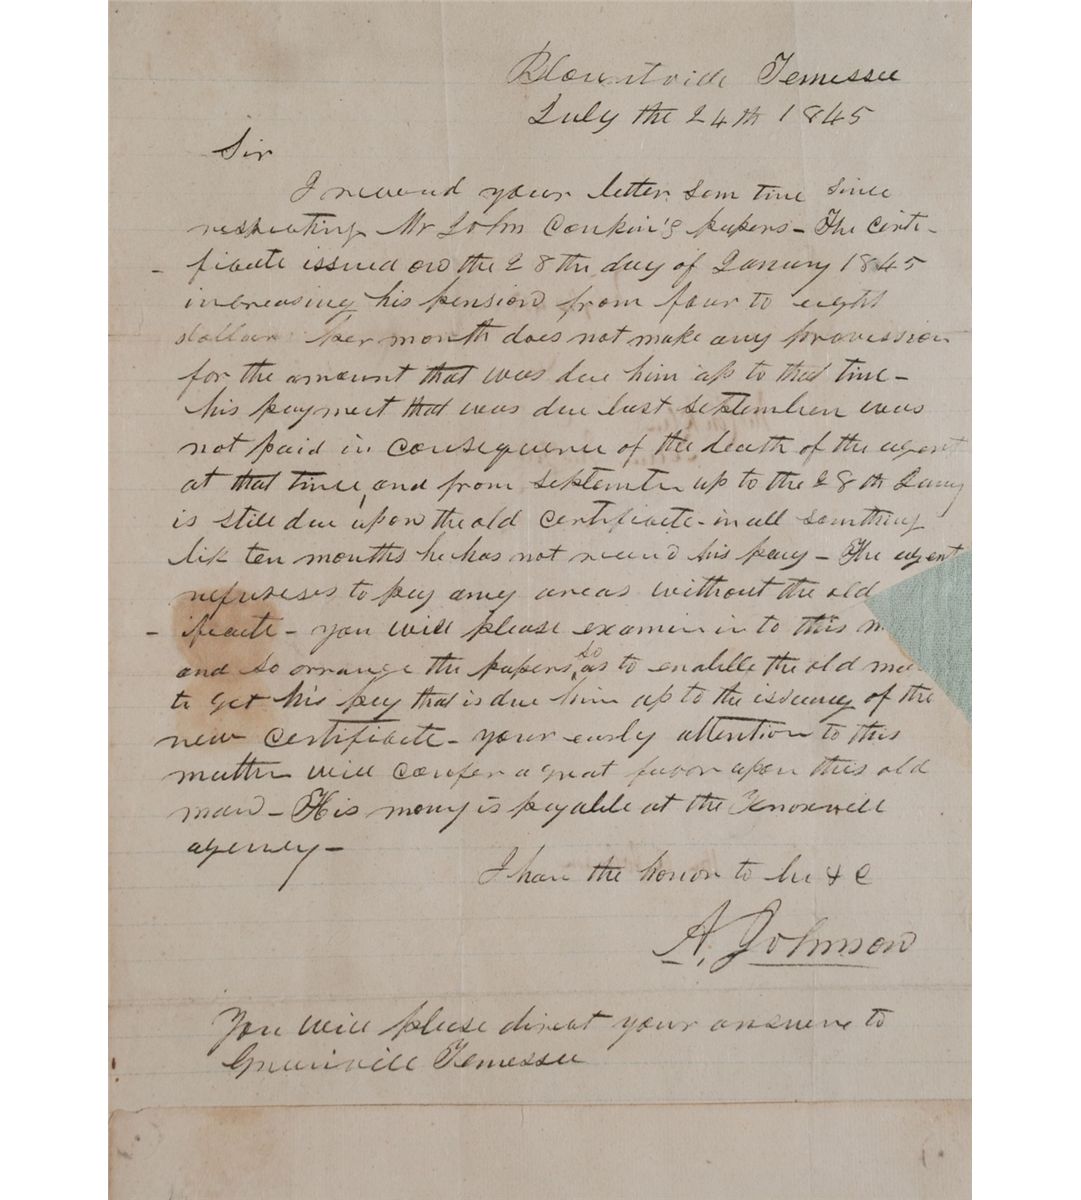 Blountvill Tennessee
July the 24th 1845
Sir
I received your letter som time since
respecting Mr John Conkin's papers - The certi-
- ficate issued on the 28th day of January 1845
increasing his pension from four to eight
dollars per month does not make any provission
for the amount that was due him up to that time -
his payment that was due last september was
not paid in consequence of the death of the agent
at that time, and from september up to the 28th Janry
is still due upon the old certificate - in all something
lik ten months he has not received his pay - The agent
refuseses to pay any areas without the old
- ificate - you will please examin in to this
and so arrange the papers so as to enablle the old
to get his pay that is due him up to the issuing of the
new certificate - your early attention to this
matter will confer a great favor upon this old
man - His mony is payable at the Knoxvill
agency -
I have the honor to be & C
A. Johnson
You will please direct your answere to
Greenvill Tennessee